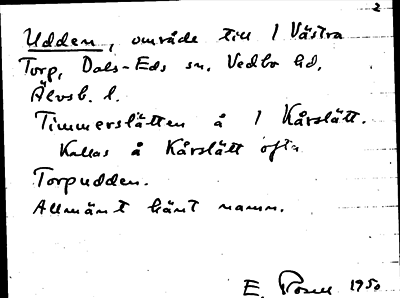 2
Udden, område till 1 Västra
Torp, Dals-Eds sn. Vedbo hd,
Älvsb. l.
Timmerslätten å 1 Kårslätt.
Kallas å Kårslätt ofta
Torpudden.
Allmänt känt namn.
E. 1950